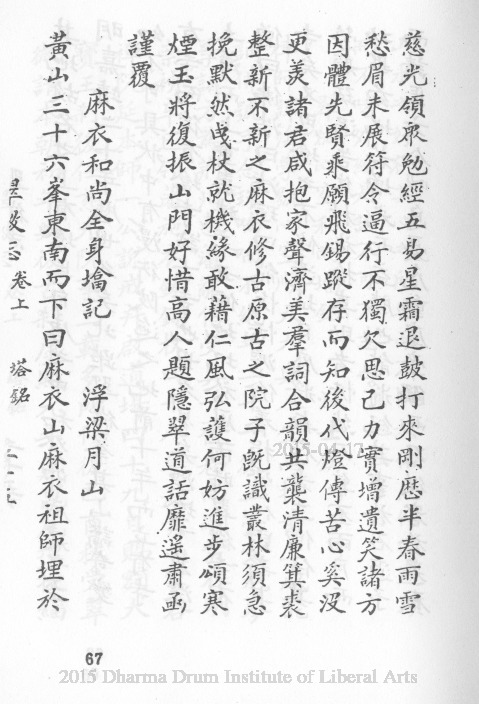 慈光領眾勉經五易星霜退鼓打來剛歷半春雨雪
愁眉未展符令逼行不獨欠思己力實增遺笑諸方
因體先賢乘願飛錫蹤存而知後代燈傳苦心奚沒
更羡諸君咸抱家聲濟美羣詞合韻共襲清廉箕裘
整新不新之麻衣修古原古之院子既識叢林須急
挽默然曳杖就機緣敢藉仁風弘護何妨進步頌寒
煙玉將復振山門好惜高人題隱翠道話靡遙肅函
謹覆
麻衣和尚全身墖記 浮梁月山
黃山三十六峯東南而下曰麻衣山麻衣祖師埋於
卷上 塔銘
67
2015-04-17
2015 Dharma Drum Institute of Liberal Arts